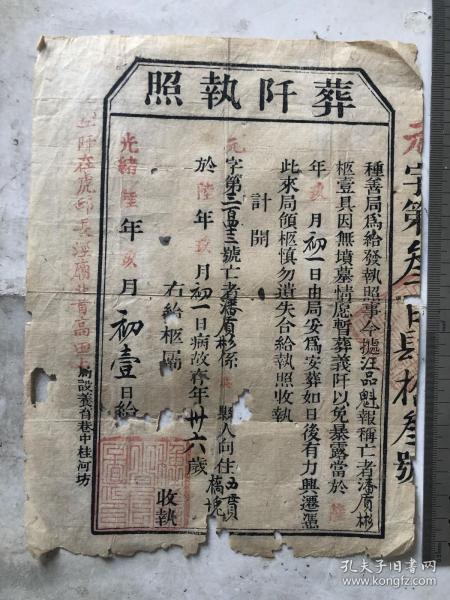 葬阡執照
元字第叁百肆拾叁號
種善局爲給發執照事今據汪品魁報稱亡者潘廣彬
柩壹具因無墳墓情愿暫葬義阡以免暴露當於陸
年玖月初一日由局妥爲安葬如日後有力興遷憑
此來局領柩慎勿遺失合給執照收執
計開
元字第三百四三號亡者潘廣彬係縣人向住西貫橋塊
於陸年玖月初一日病故存年卅六歲
右給柩屬 收執
光緒陸年玖月初壹日給
阡在虎邱長涇廟北首高田
局設義育巷中桂河坊
孔夫子旧书网
www.kongfz.com